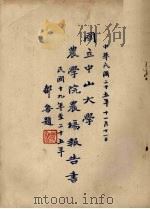 中華民國二十五年十一月十一日
國立中山大學
農學院農場報告書
民國十九年至二十五年
鄒魯題